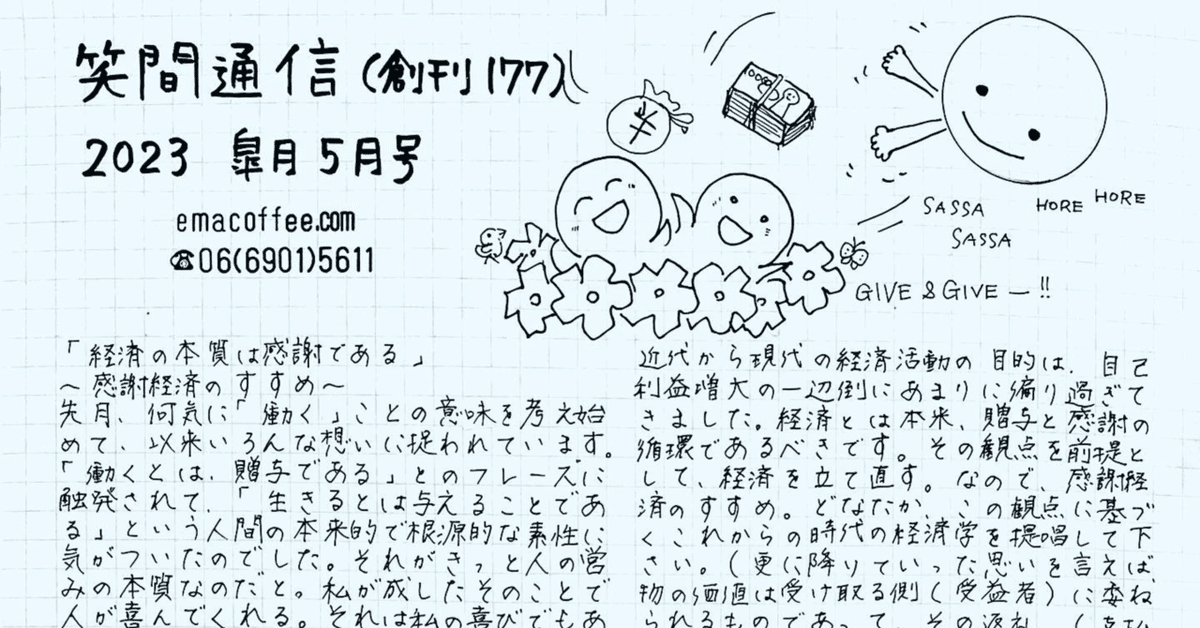 笑間通信(創刊177)
2023 皐月5月号
emacoffee.com
☎06(6901)5611
¥
SASSA
HORE HORE
SASSA
GIVE & GIVE ー!!
「経済の本質は感謝である」
〜感謝経済のすすめ〜
先月、何気に「働く」ことの意味を考え始
めて、以来いろんな想いに捉われています。
「働くとは、贈与である」とのフレーズに
触発されて、「生きるとは与えることであ
る」という人間の本来的で根源的な素性に
気がついたのでした。それがきっと人の営
みの本質なのだと。私が成したそのことで
人が喜んでくれる。それは私の喜びでもあ
近代から現代の経済活動の目的は、自己
利益増大の一辺倒にあまりに偏り過ぎて
きました。経済とは本来、贈与と感謝の
循環であるべきです。その観点を前提と
して、経済を立て直す。なので、感謝経
済のすすめ。どなたか、この観点に基づ
くこれからの時代の経済学を提唱して下
さい。(更に降りていった思いを言えば、
物の価値は受け取る側(受益者)に委ね
られるものであって、その返礼